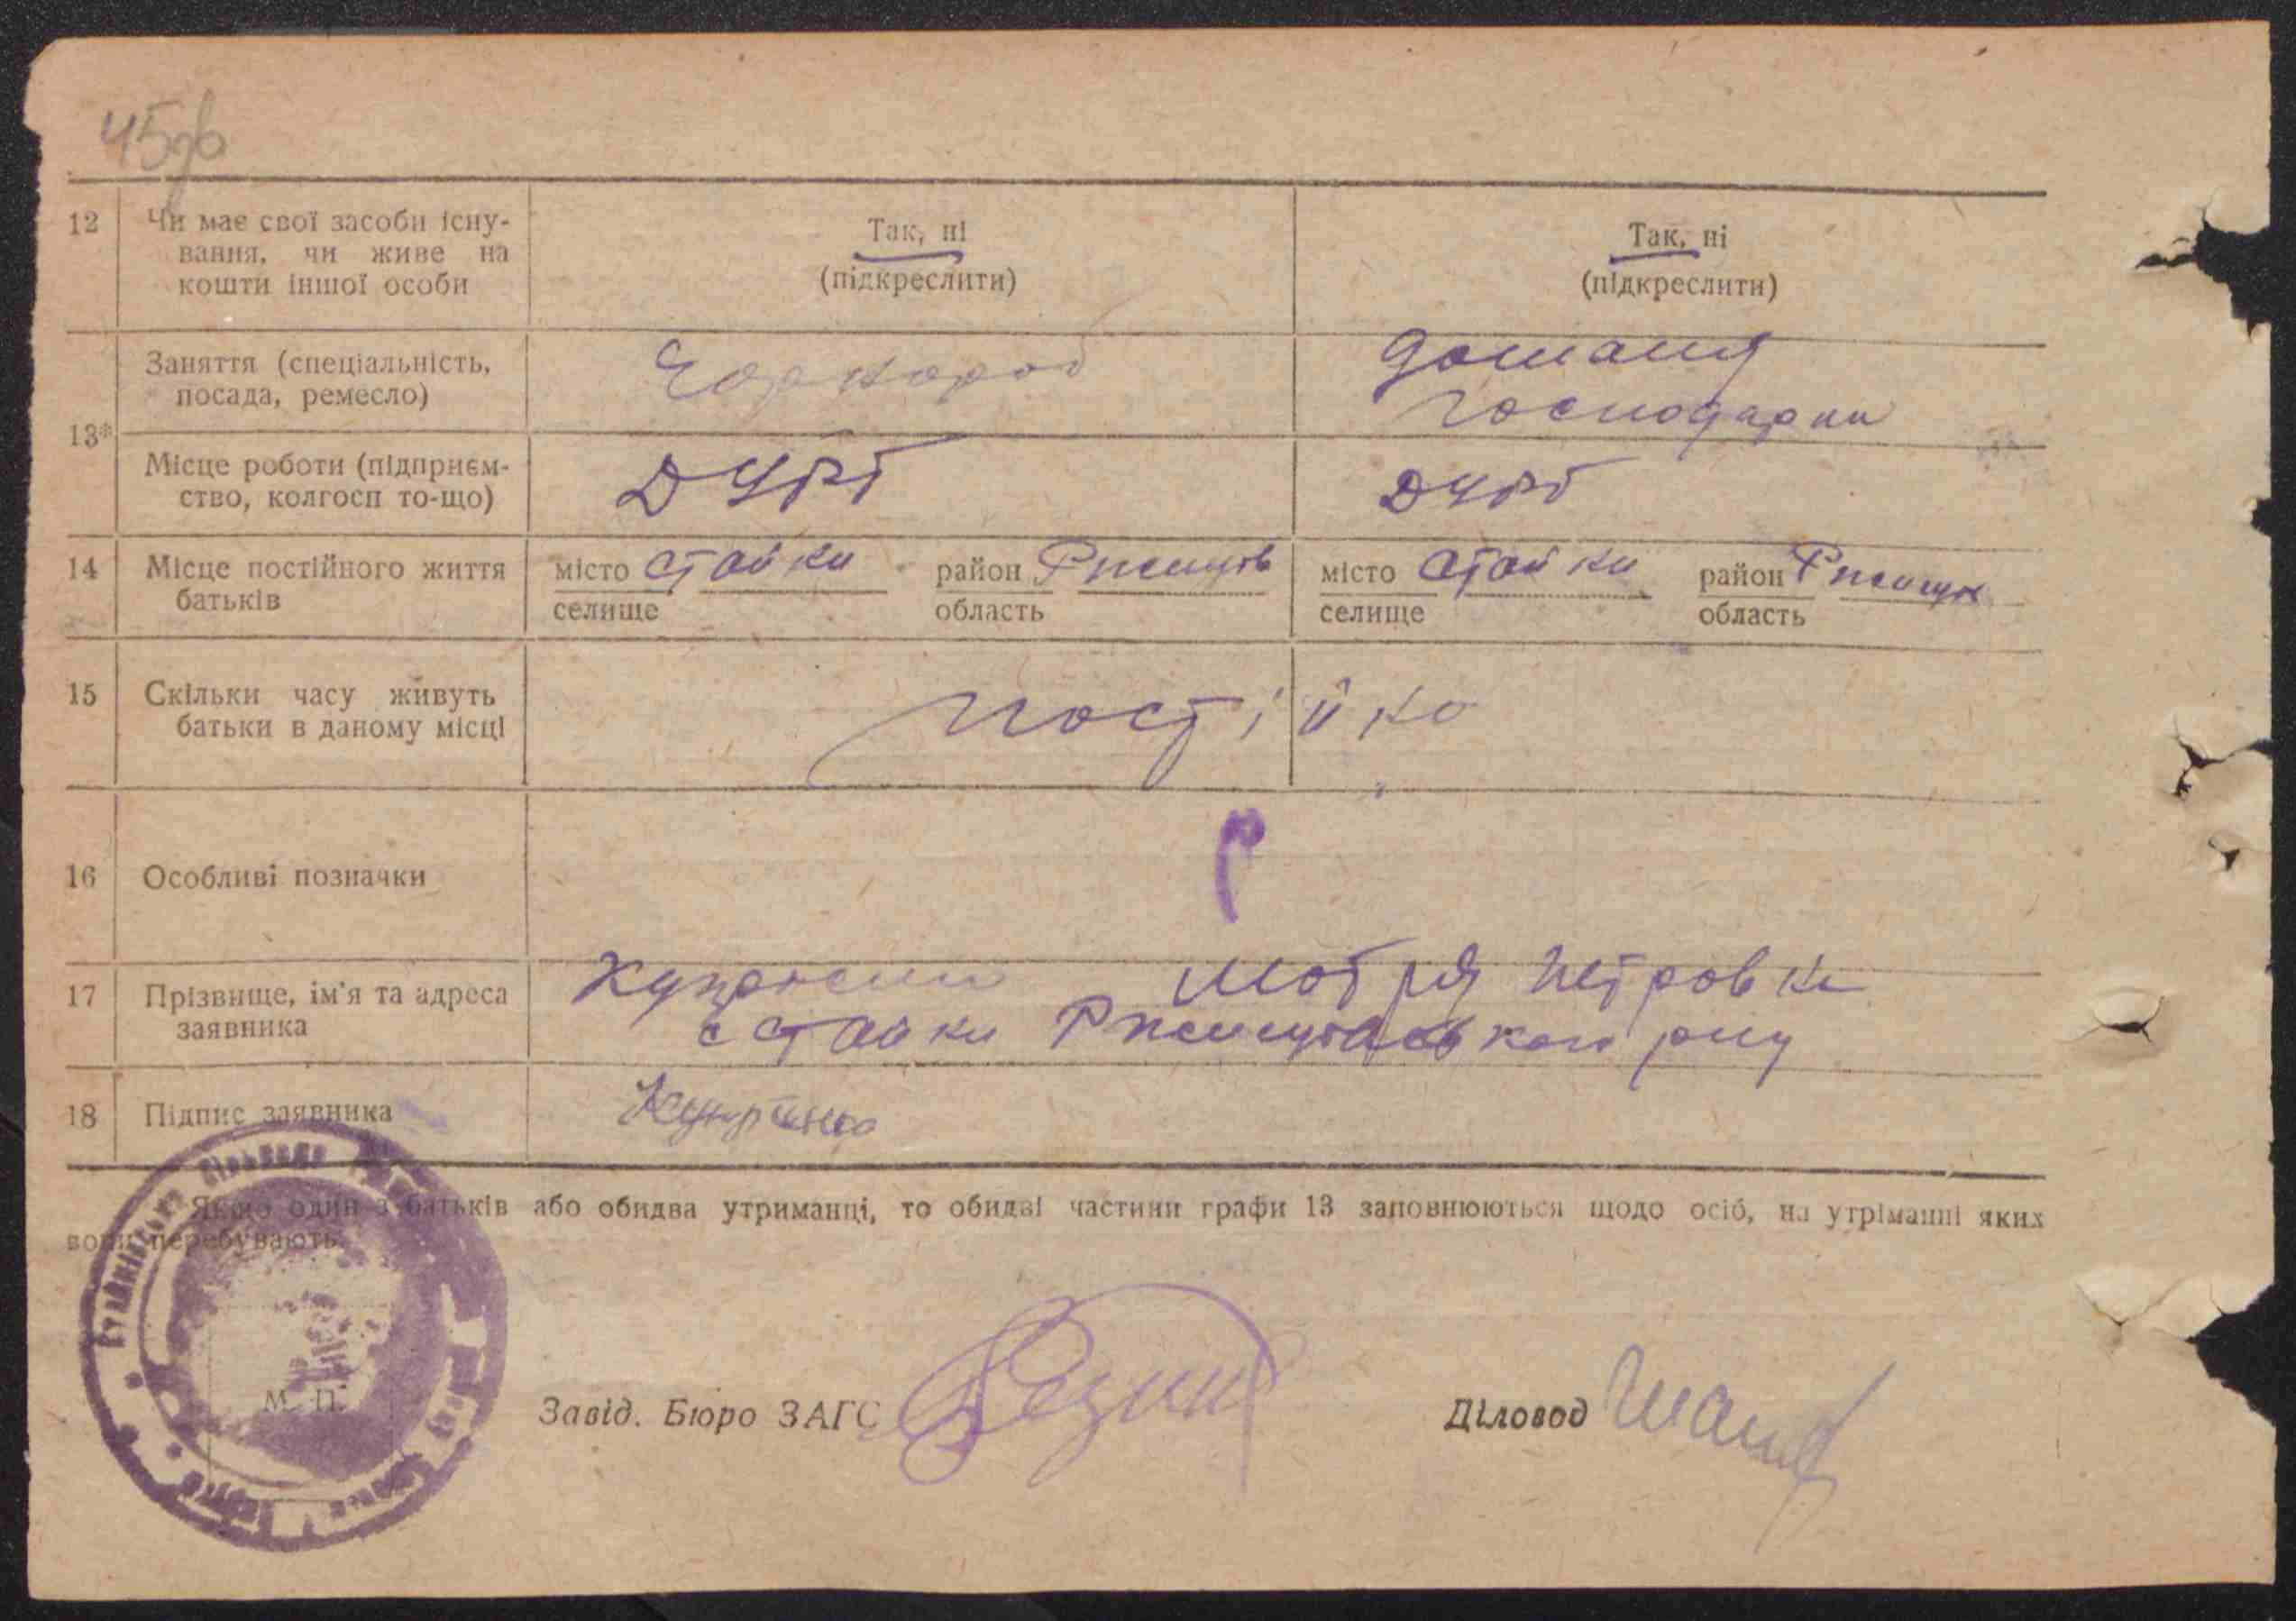 45зв
12 Чи має свої засоби існу-
вання, чи живе на
кошти іншої особи
Так, ні
(підкреслити)
Так, ні
(підкреслити)
13*
Заняття (спеціальність,
посада, ремесло)
Чорнороб
Домашя
господарка
Місце роботи (підприєм-
ство, колгосп то-що)
14 Місце постійного життя
батьків
місто Стайки район Ржищів
селище область
місто Стайки район
селище область
15 Скільки часу живуть
батьки в даному місці
постійно
16 Особливі позначки
17 Прізвище, ім'я та адреса
заявника
Мотря Петровна
с Стайки
18 Підпис заявника
Якщо один з батьків або обидва утриманці, то обидві частини графи 13 заповнюються щодо осіб, на утріманні яких
вони перебувають.
М. П.
Завід. Бюро ЗАГС
Діловод